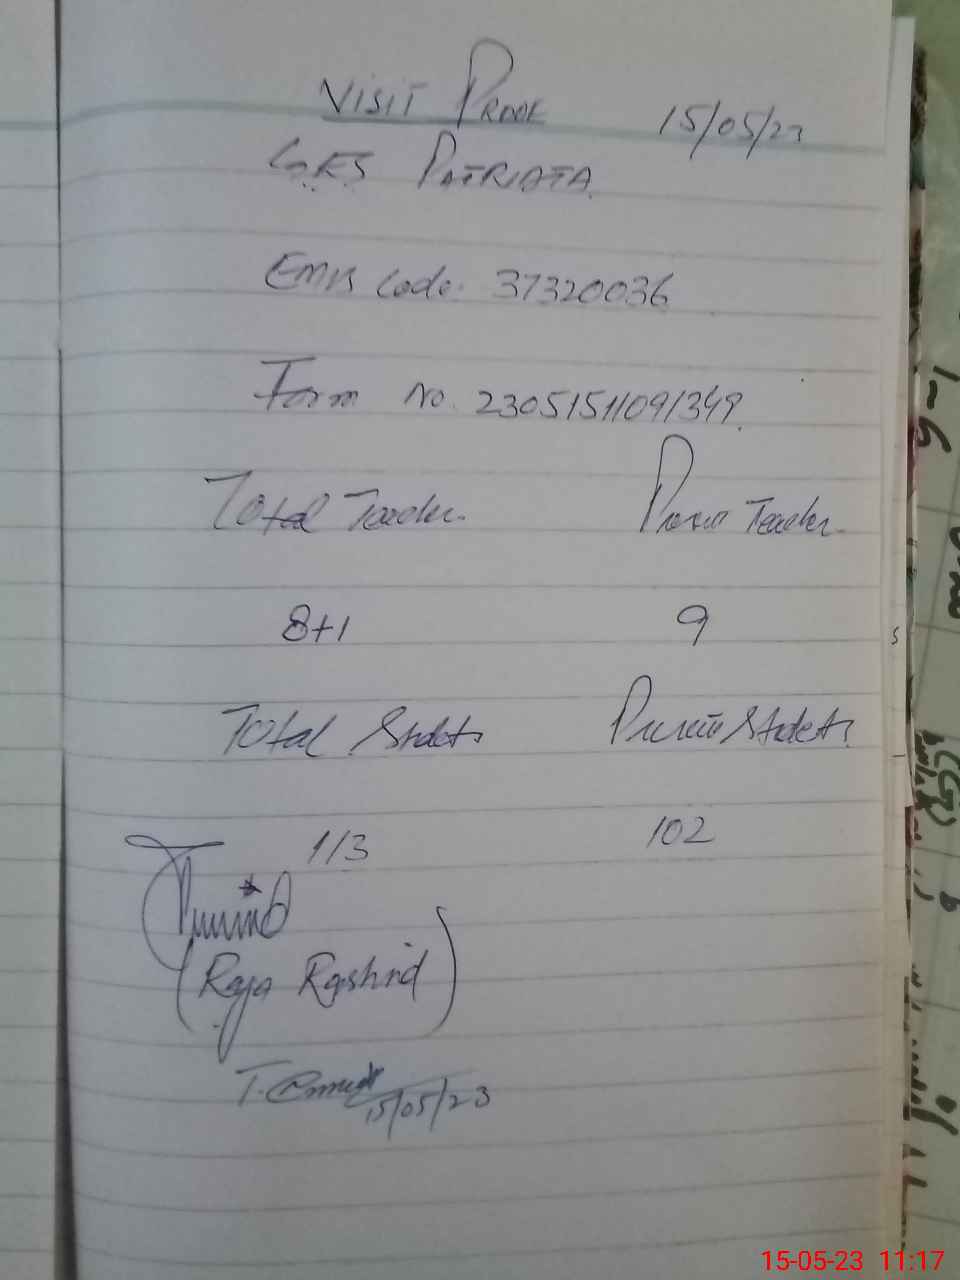 Visit Proof 15/05/23
G.E.S PATRIATA
Emis Code. 37320036
Form No. 23051511091349.
Total Teacher. Present Teacher.
8+1 9
Total Students Present Students
113 102
(Raja Rashid)
15/05/23
15-05-23 11:17